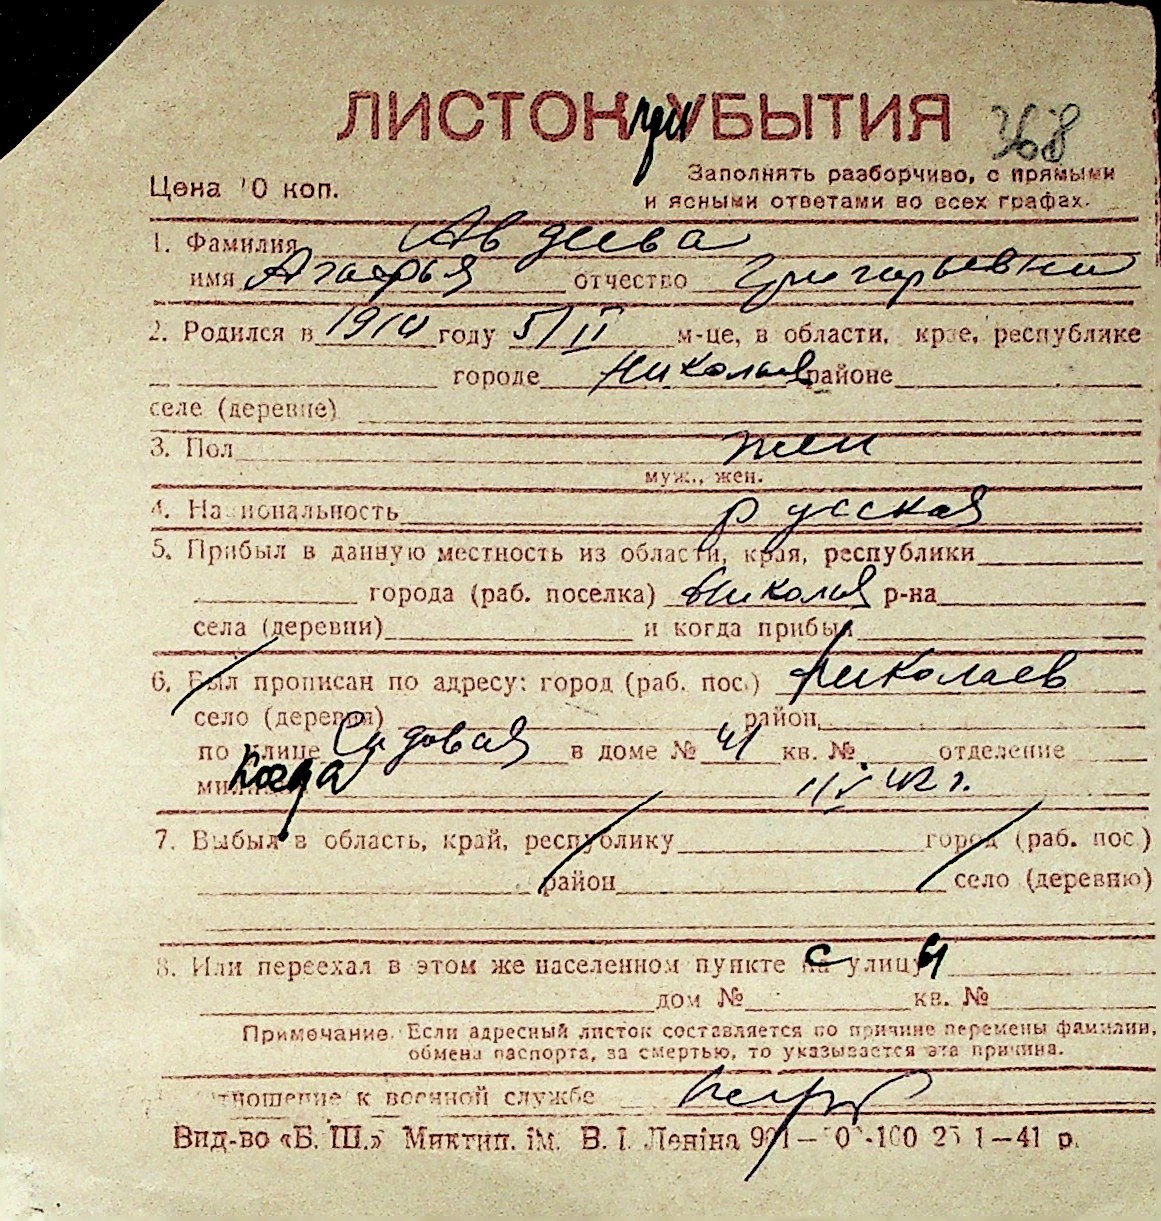 ЛИСТОК при УБЫТИЯ 368
Цена 10 коп.
Заполнять разборчиво, с прямыми
и ясными ответами во всех графах.
1. Фамилия Авдеева
имя Агафья отчество Григорьевна
2. Родился в 1910 году 5/II м-це, в области, крае, республике
городе Николаев районе
селе (деревне)
3. Пол жен
муж., жен.
4. Национальность русская
5. Прибыл в данную местность из области, края, республики
города (раб. поселка) Николаев р-на
села (деревни) и когда прибыл
6. Был прописан по адресу: город (раб. пос.) Николаев
село (деревня) район
по улице Садовая в доме № 41 кв. № отделение
милиции Когда 1/V 42 г.
7. Выбыл в область, край, республику город (раб. пос.)
район село (деревню)
8. Или переехал в этом же населенном пункте на с улицу ы
дом № кв. №
Примечание. Если адресный листок составляется по причине перемены фамилии,
обмена паспорта, за смертью, то указывается эта причина.
отношение к военной службе
Вид-во «Б. Ш.» Миктип. ім. В. І. Леніна 901—100-100 25 1—41 р.